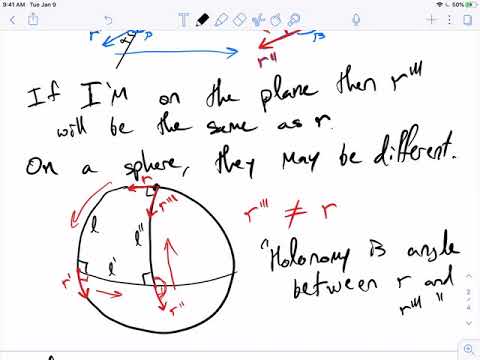 9:41 AM Tue Jan 9
50%
r α P
r''' β
If I'M on the plane then r'''
will be the same as r.
On a sphere, they may be different.
r
r'''
l l''
r''' ≠ r
"Holonomy is angle
between r and
r''' "
r' l'
r''
2
4